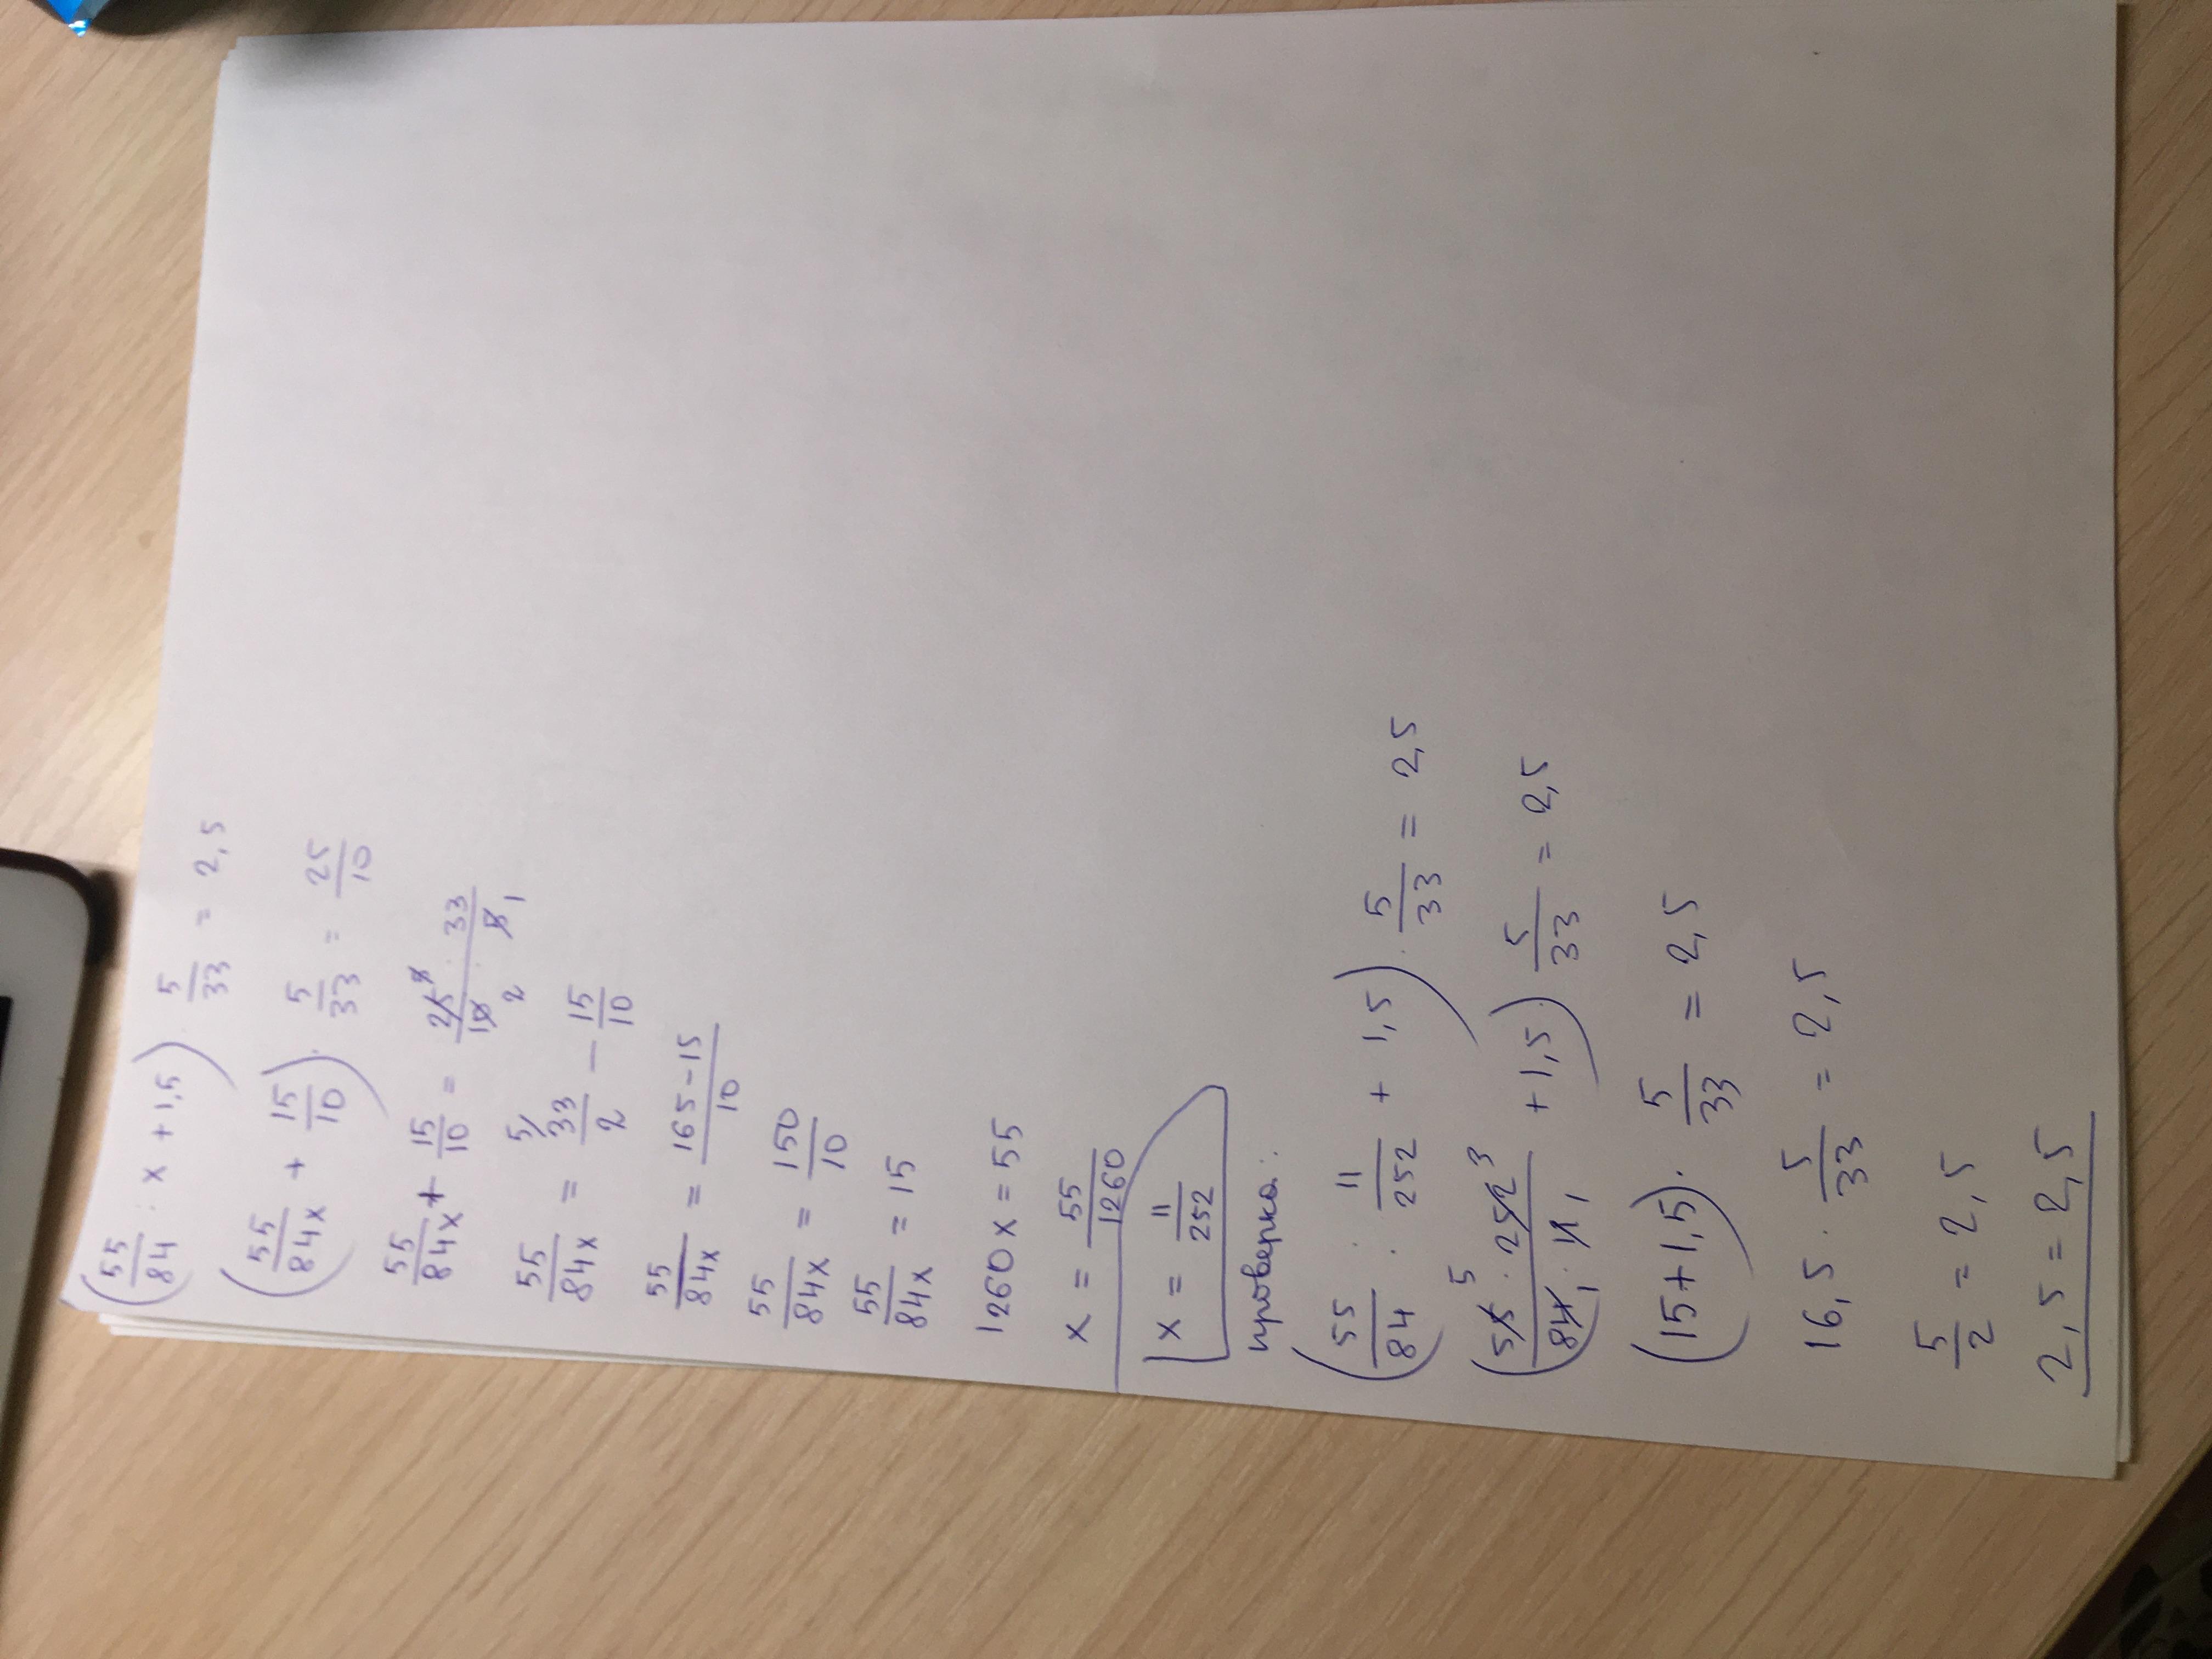 (55/84 : x + 1,5) · 5/33 = 2,5
(55/84x + 15/10) · 5/33 = 25/10
55/84x + 15/10 = 25 · 33 / 10 2 · 5 1
55/84x = 5/ 33/2 − 15/10
55/84x = 165-15/10
55/84x = 150/10
55/84x = 15
1260x = 55
x = 55/1260
x = 11/252
проверка:
(55/84 : 11/252 + 1,5) · 5/33 = 2,5
(55 5 · 252 3 / 84 1 · 11 1 + 1,5) · 5/33 = 2,5
(15+1,5) · 5/33 = 2,5
16,5 · 5/33 = 2,5
5/2 = 2,5
2,5 = 2,5